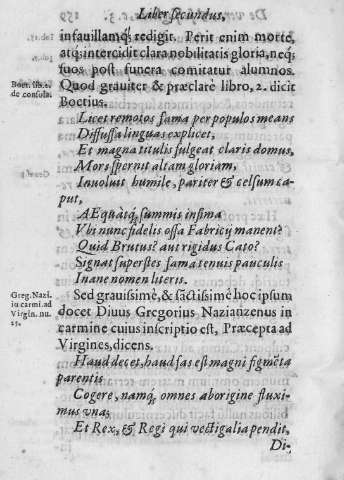 Liber secundus,
infauillamq; redigit. Perit enim morte,
atq; intercidit clara nobilitatis gloria, neq;
suos post funera comitatur alumnos.
Boet. lib. 2.
de consola.
Quod grauiter & præclarè libro, 2. dicit
Boetius.
Licet remotos fama per populos means
Diffussa linguas explicet,
Et magna titulis fulgeat claris domus,
Mors spernit altam gloriam,
Inuoluit humile, pariter & celsum ca-
put,
AEquàtq; summis infima
Vbi nunc fidelis ossa Fabricij manent?
Quid Brutus? aut rigidus Cato?
Signat superstes fama tenuis pauculis
Inane nomen literis.
Greg. Nazi.
in carmi. ad
Virgin. nu.
25.
Sed grauissimè, & sāctissimè hoc ipsum
docet Diuus Gregorius Nazianzenus in
carmine cuius inscriptio est, Præcepta ad
Virgines, dicens.
Haud decet, haud fas est magni figmēta
parentis
Cogere, namq; omnes aborigine fluxi-
mus vna;
Et Rex, & Regi qui vectigalia pendit,
Di-